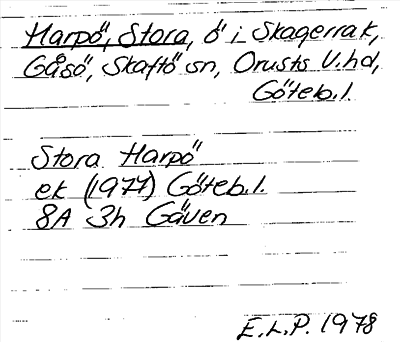 Harpö, Stora, ö i Skagerrak,
Gåsö, Skaftö sn, Orusts V.hd,
Göteb.l.
Stora Harpö
ek (1977) Göteb.l.
8A 3h Gåven
E.L.P. 1978